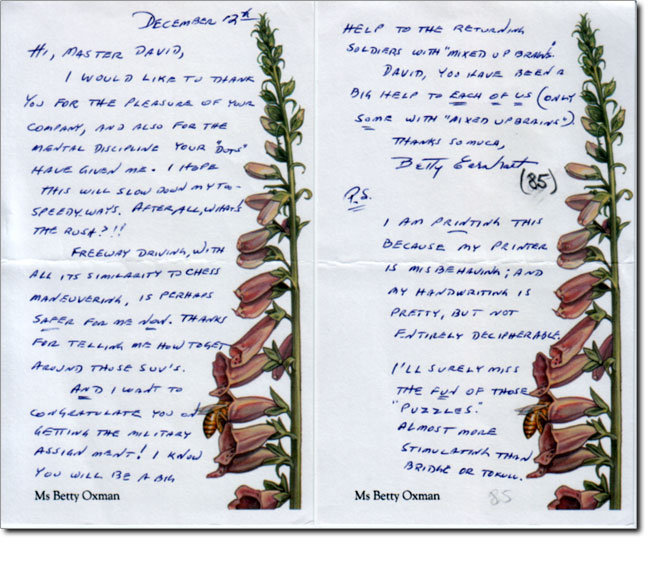 DECEMBER 12th
HI, MASTER DAVID,
I WOULD LIKE TO THANK
YOU FOR THE PLEASURE OF YOUR
COMPANY, AND ALSO FOR THE
MENTAL DISCIPLINE YOUR "DOTS"
HAVE GIVEN ME. I HOPE
THIS WILL SLOW DOWN MY TO-
SPEEDY WAYS. AFTER ALL, WHAT'S
THE RUSH?!!
FREEWAY DRIVING, WITH
ALL ITS SIMILARITY TO CHESS
MANEUVERING, IS PERHAPS
SAFER FOR ME NOW. THANKS
FOR TELLING ME HOW TO GET
AROUND THOSE SUV'S.
AND I WANT TO
CONGRATULATE YOU ON
GETTING THE MILITARY
ASSIGNMENT! I KNOW
YOU WILL BE A BIG
Ms Betty Oxman
HELP TO THE RETURNING
SOLDIERS WITH "MIXED UP BRAINS".
DAVID, YOU HAVE BEEN A
BIG HELP TO EACH OF US (ONLY
SOME WITH "MIXED UP BRAINS").
THANKS SO MUCH,
Betty
(85)
P.S.
I AM PRINTING THIS
BECAUSE MY PRINTER
IS MISBEHAVING; AND
MY HANDWRITING IS
PRETTY, BUT NOT
ENTIRELY DECIPHERABLE.
I'LL SURELY MISS
THE FUN OF THOSE
"PUZZLES."
ALMOST MORE
STIMULATING THAN
BRIDGE OR
Ms Betty Oxman
85